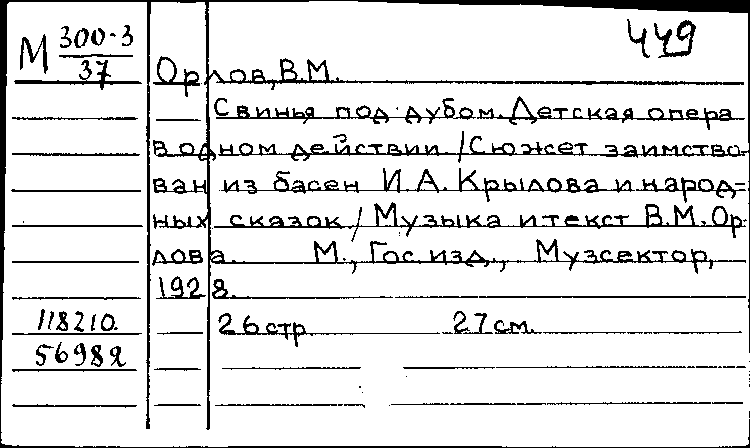 449
М 300-3
37
Орлов, В.М.
Свинья под дубом. Детская опера
в одном действии /Сюжет заимство-
ван из басен И.А. Крылова и народ-
ных сказок./ Музыка и текст В.М.Ор-
лова. М., Гос. изд., Музсектор,
1928.
118210. 26 стр. 27 см.
56982